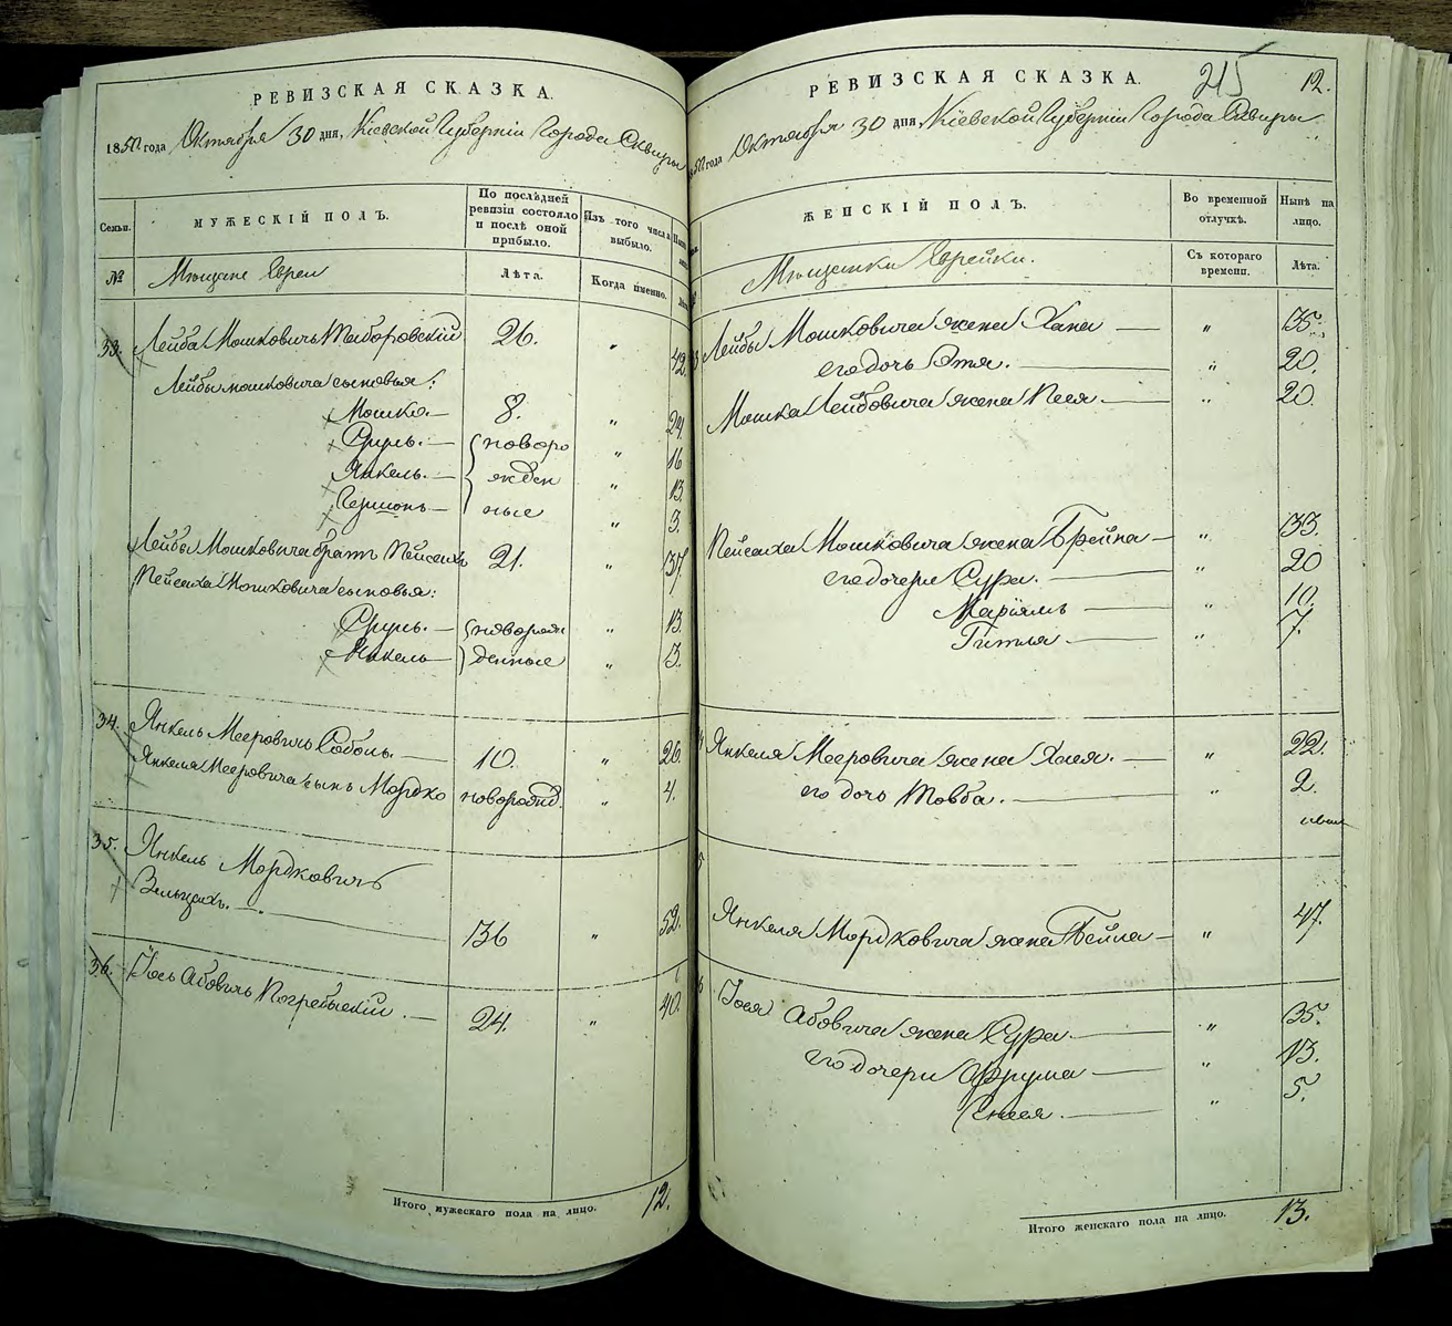 РЕВИЗСКАЯ СКАЗКА.
1850 года Октября 30 дня, Кіевской Губерніи Города Сквиры
Семьи.
МУЖЕСКІЙ ПОЛЪ.
По послѣдней ревизіи состояло и послѣ оной прибыло.
Изъ того числа выбыло.
№
Мѣщане Евреи
Лѣта.
Когда именно.
33. Лейба Мошковичъ Таборовскій 26. " 42.
Лейбы Мошковича сыновья:
Мошко — 8. " 24.
Сруль. — новоро " 16
Янкель. — жден " 13.
Гершонъ — ные " 3.
Лейбы Мошковича братъ Пейсахъ 21. " 37.
Пейсаха Мошковича сыновья:
Сруль. — новорож " 13.
Янкель — денные " 3.
34. Янкель Мееровичъ Соболь. — 10. " 26.
Янкеля Мееровича сынъ Мордко новорожд. " 4.
35. Янкель Мордковичъ
— 36 " 52.
36. Іось Абовичъ Погребыскій. — 24. " 40.
Итого мужескаго пола на лицо. 12.
РЕВИЗСКАЯ СКАЗКА. 215 12.
1850 года Октября 30 дня, Кіевской Губерніи Города Сквиры
ЖЕНСКІЙ ПОЛЪ.
Во временной отлучкѣ.
Нынѣ на лицо.
Мѣщанки Еврейки.
Съ котораго времени.
Лѣта.
Лейбы Мошковича жена Хана — " 35.
его дочь Этя. — " 20.
Мошка Лейбовича жена Песя. — " 20.
Пейсаха Мошковича жена Брейна — " 33.
его дочери Сура. — " 20
Маріямъ — " 10.
Гитля — " 7.
Янкеля Мееровича жена Хася. — " 22.
его дочь Товба. — " 2.
Янкеля Мордковича жена Бейла — " 47.
Іося Абовича жена Сура — " 35.
его дочери Фрума — " 13.
— " 5.
Итого женскаго пола на лицо. 13.